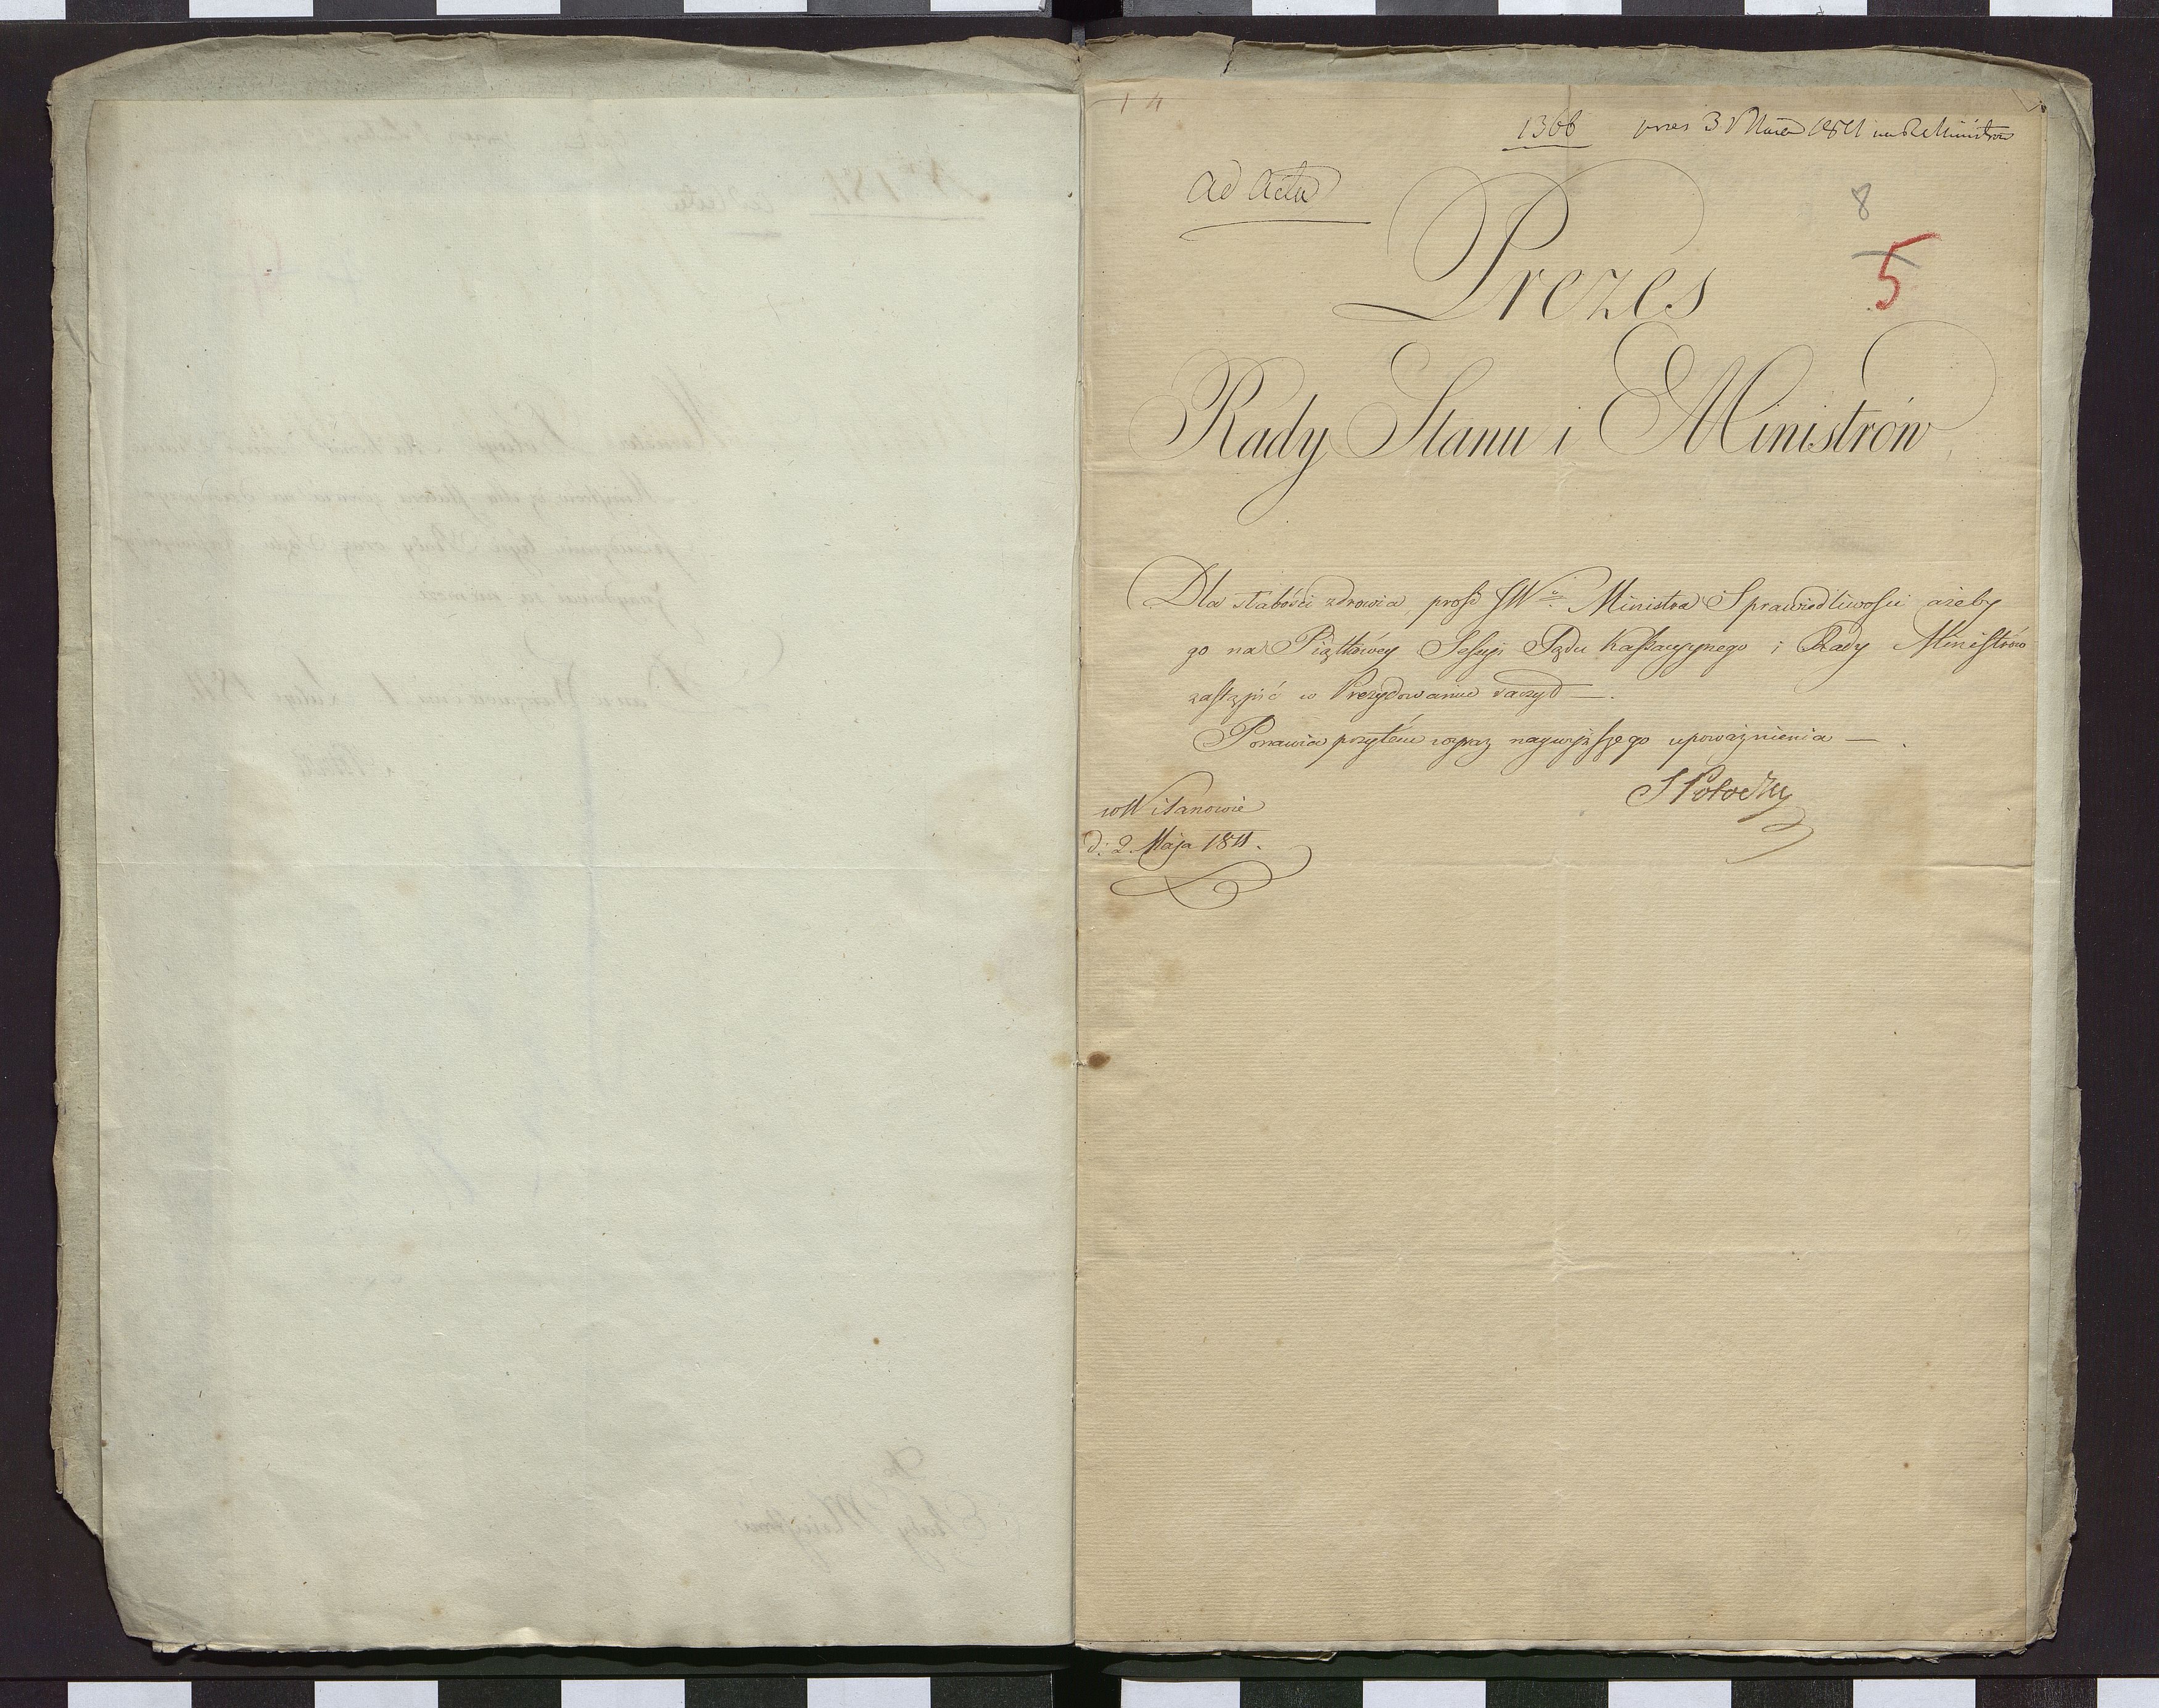 1366 pres 3 Maia 1811 na R Ministrow
ad Acta
8
5
Prezes
Rady Stanu i Ministrów
Dla słabości zdrowia, prosi JW° Ministra Sprawiedliwości ażeby
go na Piątkowey Sessyi Sądu Kassacyinego i Rady Ministrów
zastąpić w Prezydowaniu raczył —.
Ponawia przytém wyraz naywyższego upoważnienia —.
SPotocky
w Wilanowie
d: 2. Maja 1811.